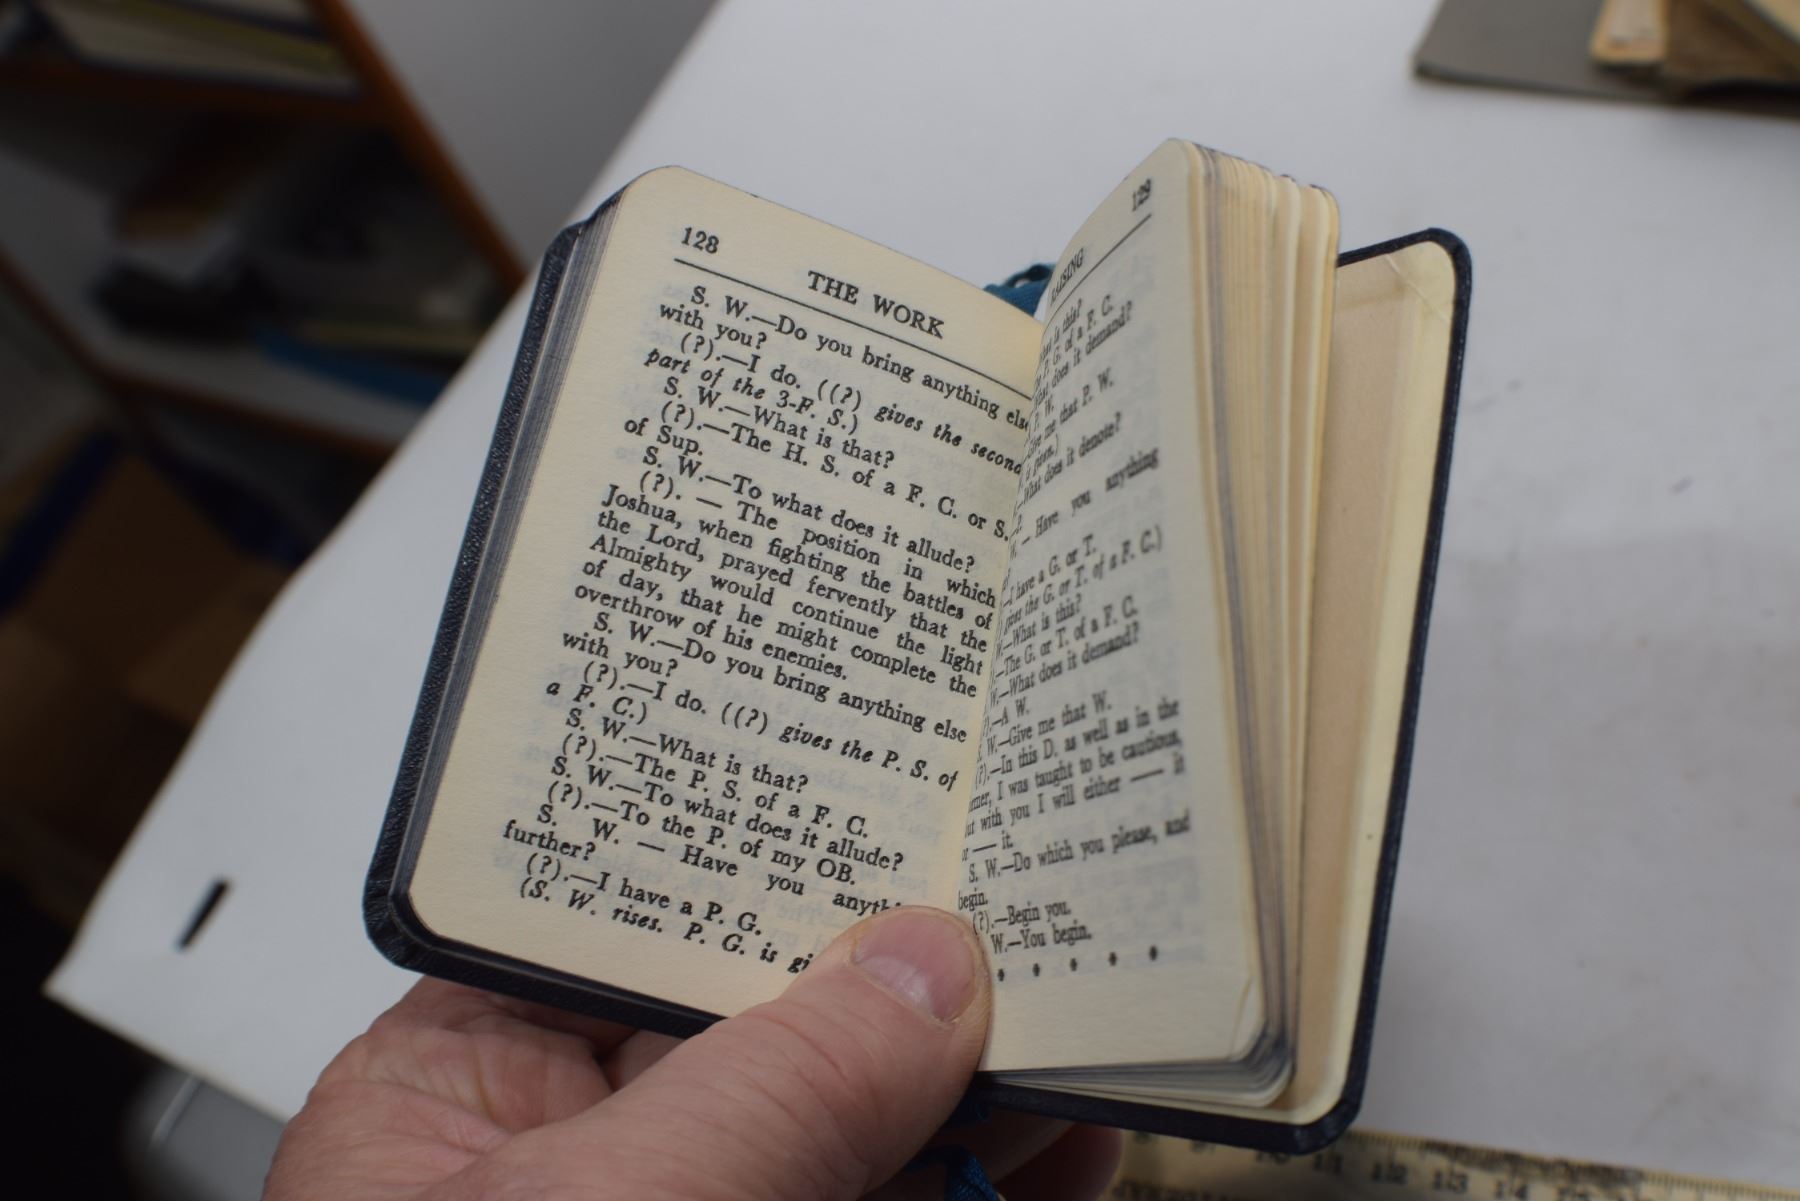 128
THE WORK
S. W.—Do you bring anything else
with you?
(?).—I do. ((?) gives the second
part of the 3-F. S.)
S. W.—What is that?
(?).—The H. S. of a F. C. or S.
of Sup.
S. W.—To what does it allude?
(?). — The position in which
Joshua, when fighting the battles of
the Lord, prayed fervently that the
Almighty would continue the light
of day, that he might complete the
overthrow of his enemies.
S. W.—Do you bring anything else
with you?
(?).—I do. ((?) gives the P. S. of
a F. C.)
S. W.—What is that?
(?).—The P. S. of a F. C.
S. W.—To what does it allude?
(?).—To the P. of my OB.
S. W. — Have you
further?
(?).—I have a P. G.
(S. W. rises. P. G. is
129
RAISING
is this?
P. G. of a F. C.
does it demand?
P. W.
Give me that P. W.
is given.)
—What does it denote?
P.
W. — Have you anything
—I have a G. or T.
gives the G. or T. of a F. C.)
W.—What is this?
—The G. or T. of a F. C.
W.—What does it demand?
—A W.
W.—Give me that W.
(?).—In this D. as well as in the
I was taught to be cautious,
with you I will either —— it
or —— it.
S. W.—Do which you please, and
begin.
(?).—Begin you.
W.—You begin.
11 12 13 14